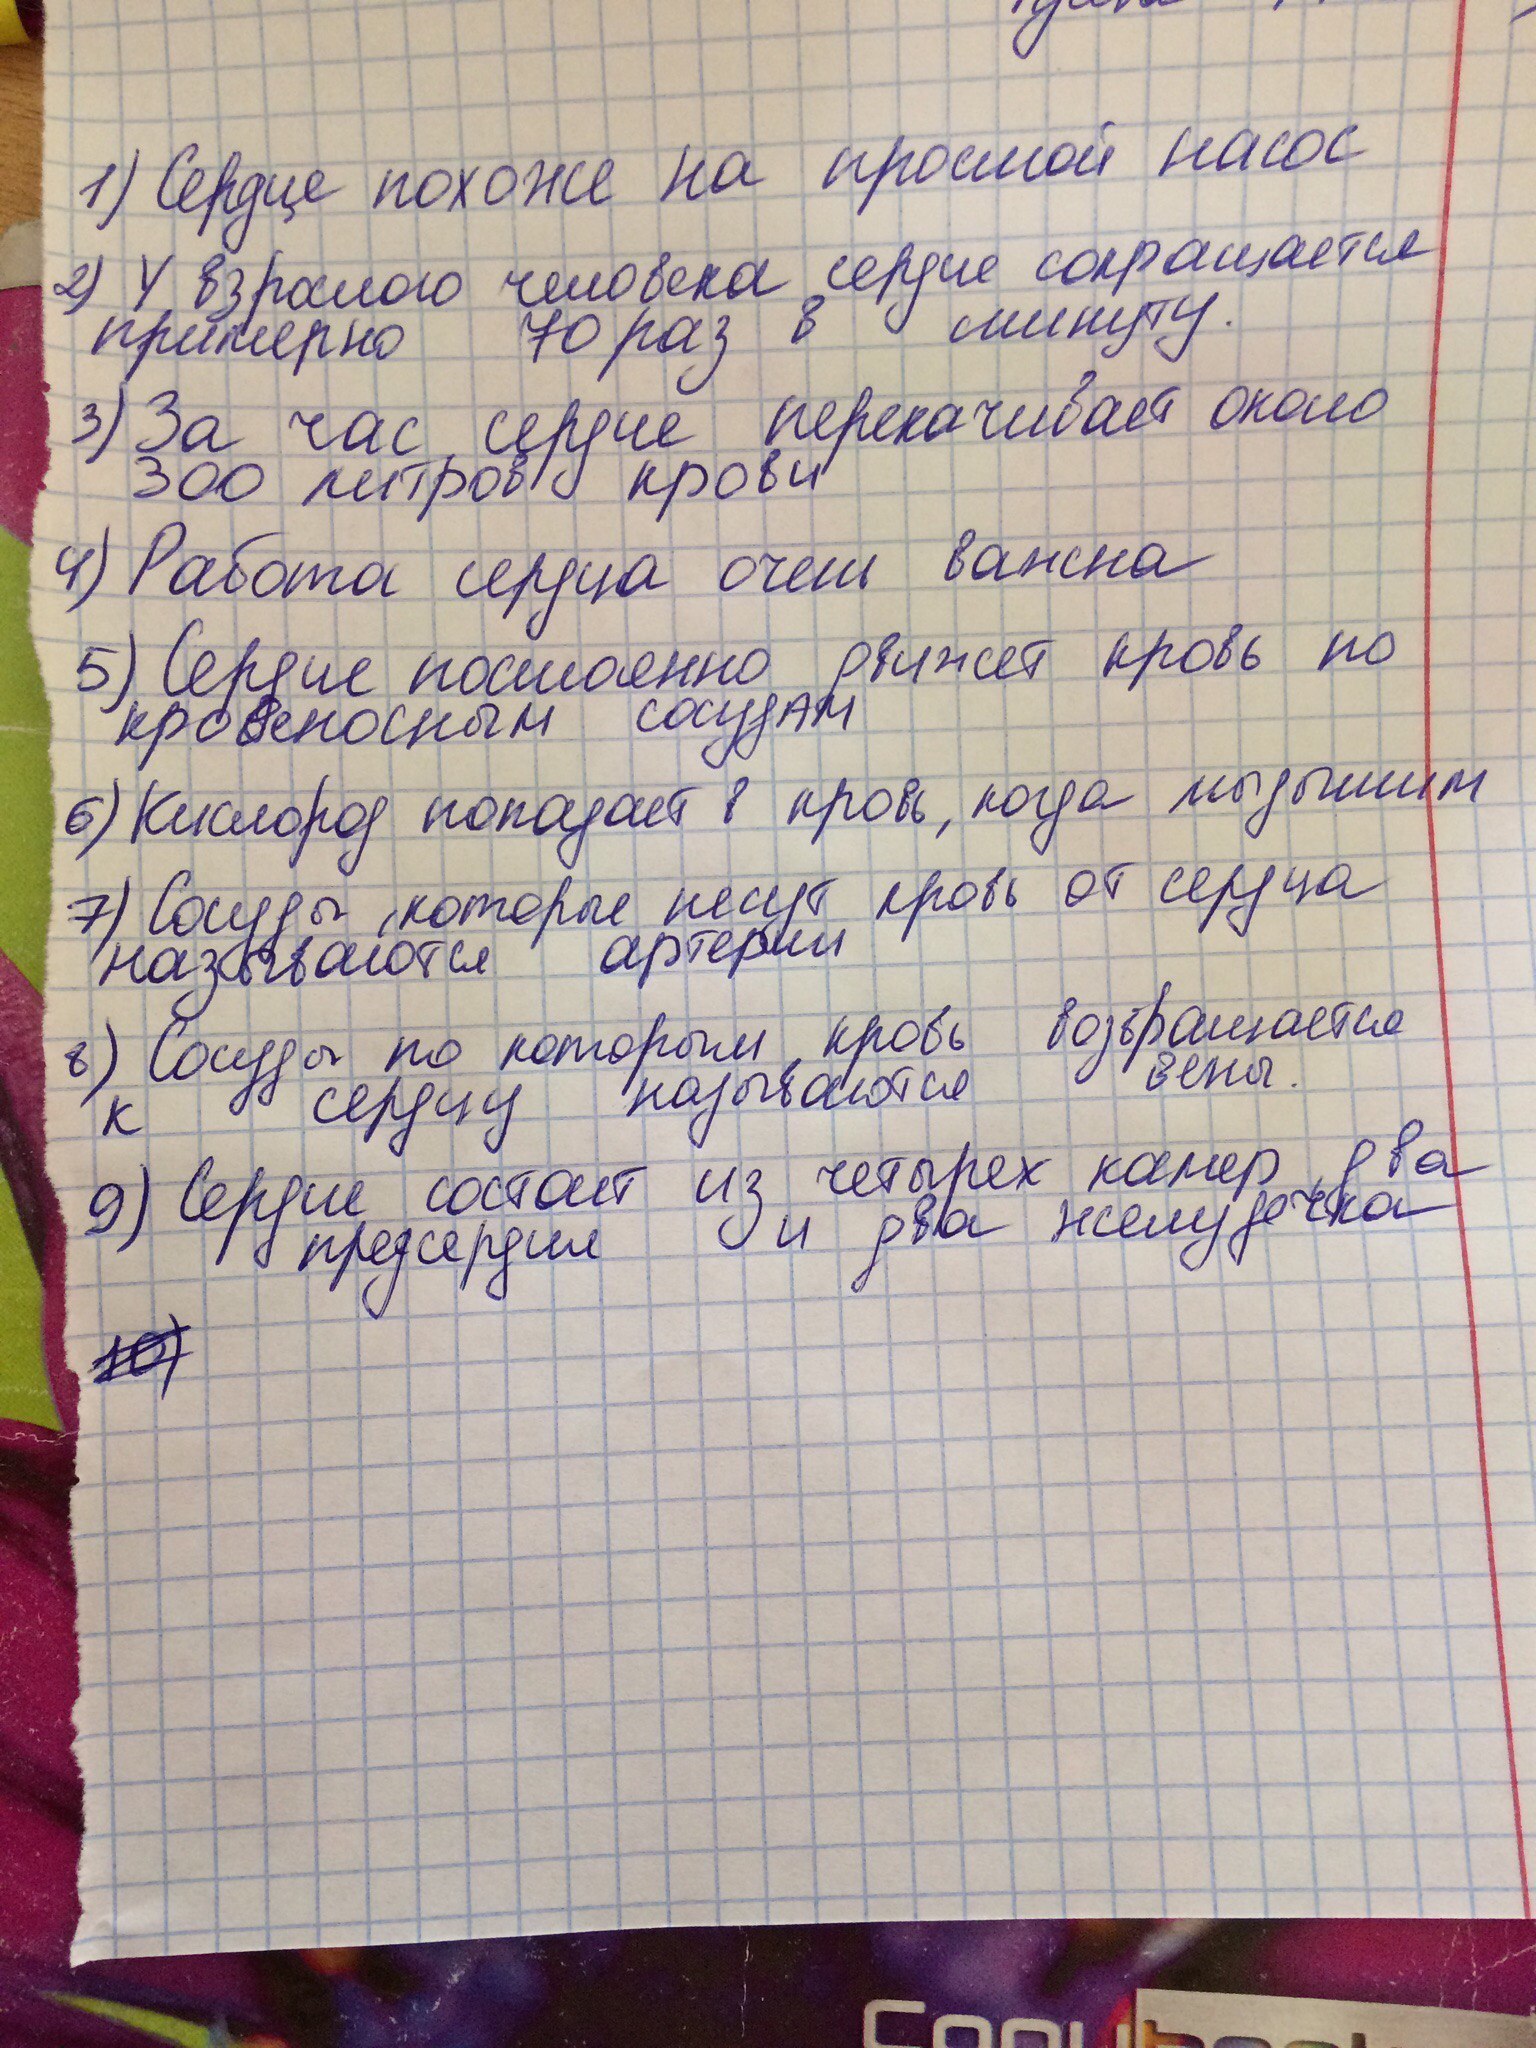 1) Сердце похоже на простой насос
2) У взрослого человека сердце сокращается
примерно 70 раз в минуту.
3) За час сердце перекачивает около
300 литров крови
4) Работа сердца очень важна
5) Сердце постоянно движет кровь по
кровеносным сосудам
6) Кислород попадает в кровь, когда мы дышим
7) Сосуды, которые несут кровь от сердца
называются артерии
8) Сосуды по которым кровь возвращается
к сердцу называются вены.
9) Сердце состоит из четырех камер два
предсердия и два желудочка
10)
Copybook